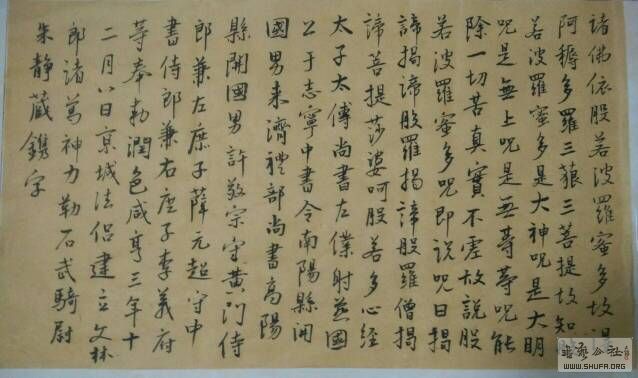 諸佛依般若波羅蜜多故得
阿耨多羅三藐三菩提故知
若波羅蜜多是大神咒是大明
咒是無上咒是無等等咒能
除一切苦真實不虛故説般
若波羅蜜多咒即説咒曰揭
諦揭諦般羅揭諦般羅僧揭
諦菩提莎婆呵般若多心經
太子太傅尚書左僕射燕國
公于志寧中書令南陽縣開
國男来濟禮部尚書高陽
縣開國男許敬宗守黄門侍
郎兼左庶子薛元超守中
書侍郎兼右庶子李義府
等奉勅潤色咸亨三年十
二月八日京城法侣建立文林
郎諸葛神力勒石武騎尉
朱静藏鐫字
WWW.SHUFA.ORG